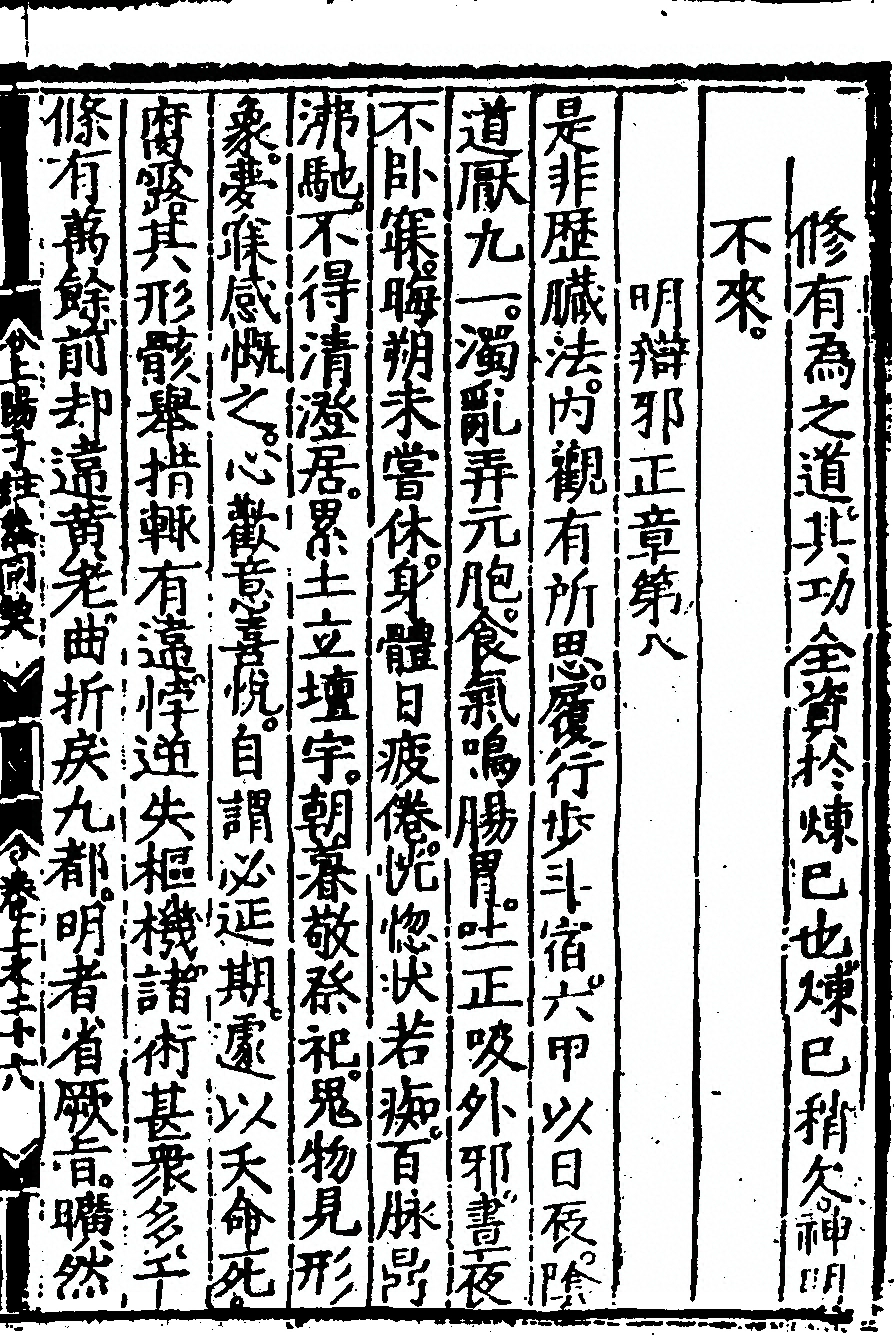 修有為之道其功全資於煉巳也煉巳稍欠神明
不來
明辯邪正章第八
是非歷臟法内觀有所思履行步斗宿六甲以日辰陰
道厭九一濁亂弄元胞食氣鳴腸胃吐正吸外邪晝夜
不卧寐晦朔未嘗休身體日疲倦恍惚状若痴百脉鼎
沸馳不得清澄居累土立壇宇朝暮敬祭祀鬼物見形
象夢寐感慨之心歡意喜悅自謂必延期遽以夭命死
腐露其形骸舉措輙有違悖逆失樞機諸術甚衆多千
條有萬餘前却違黄老曲折戾九都明者省厥旨曠然
上陽子註參同契
卷上之二十八